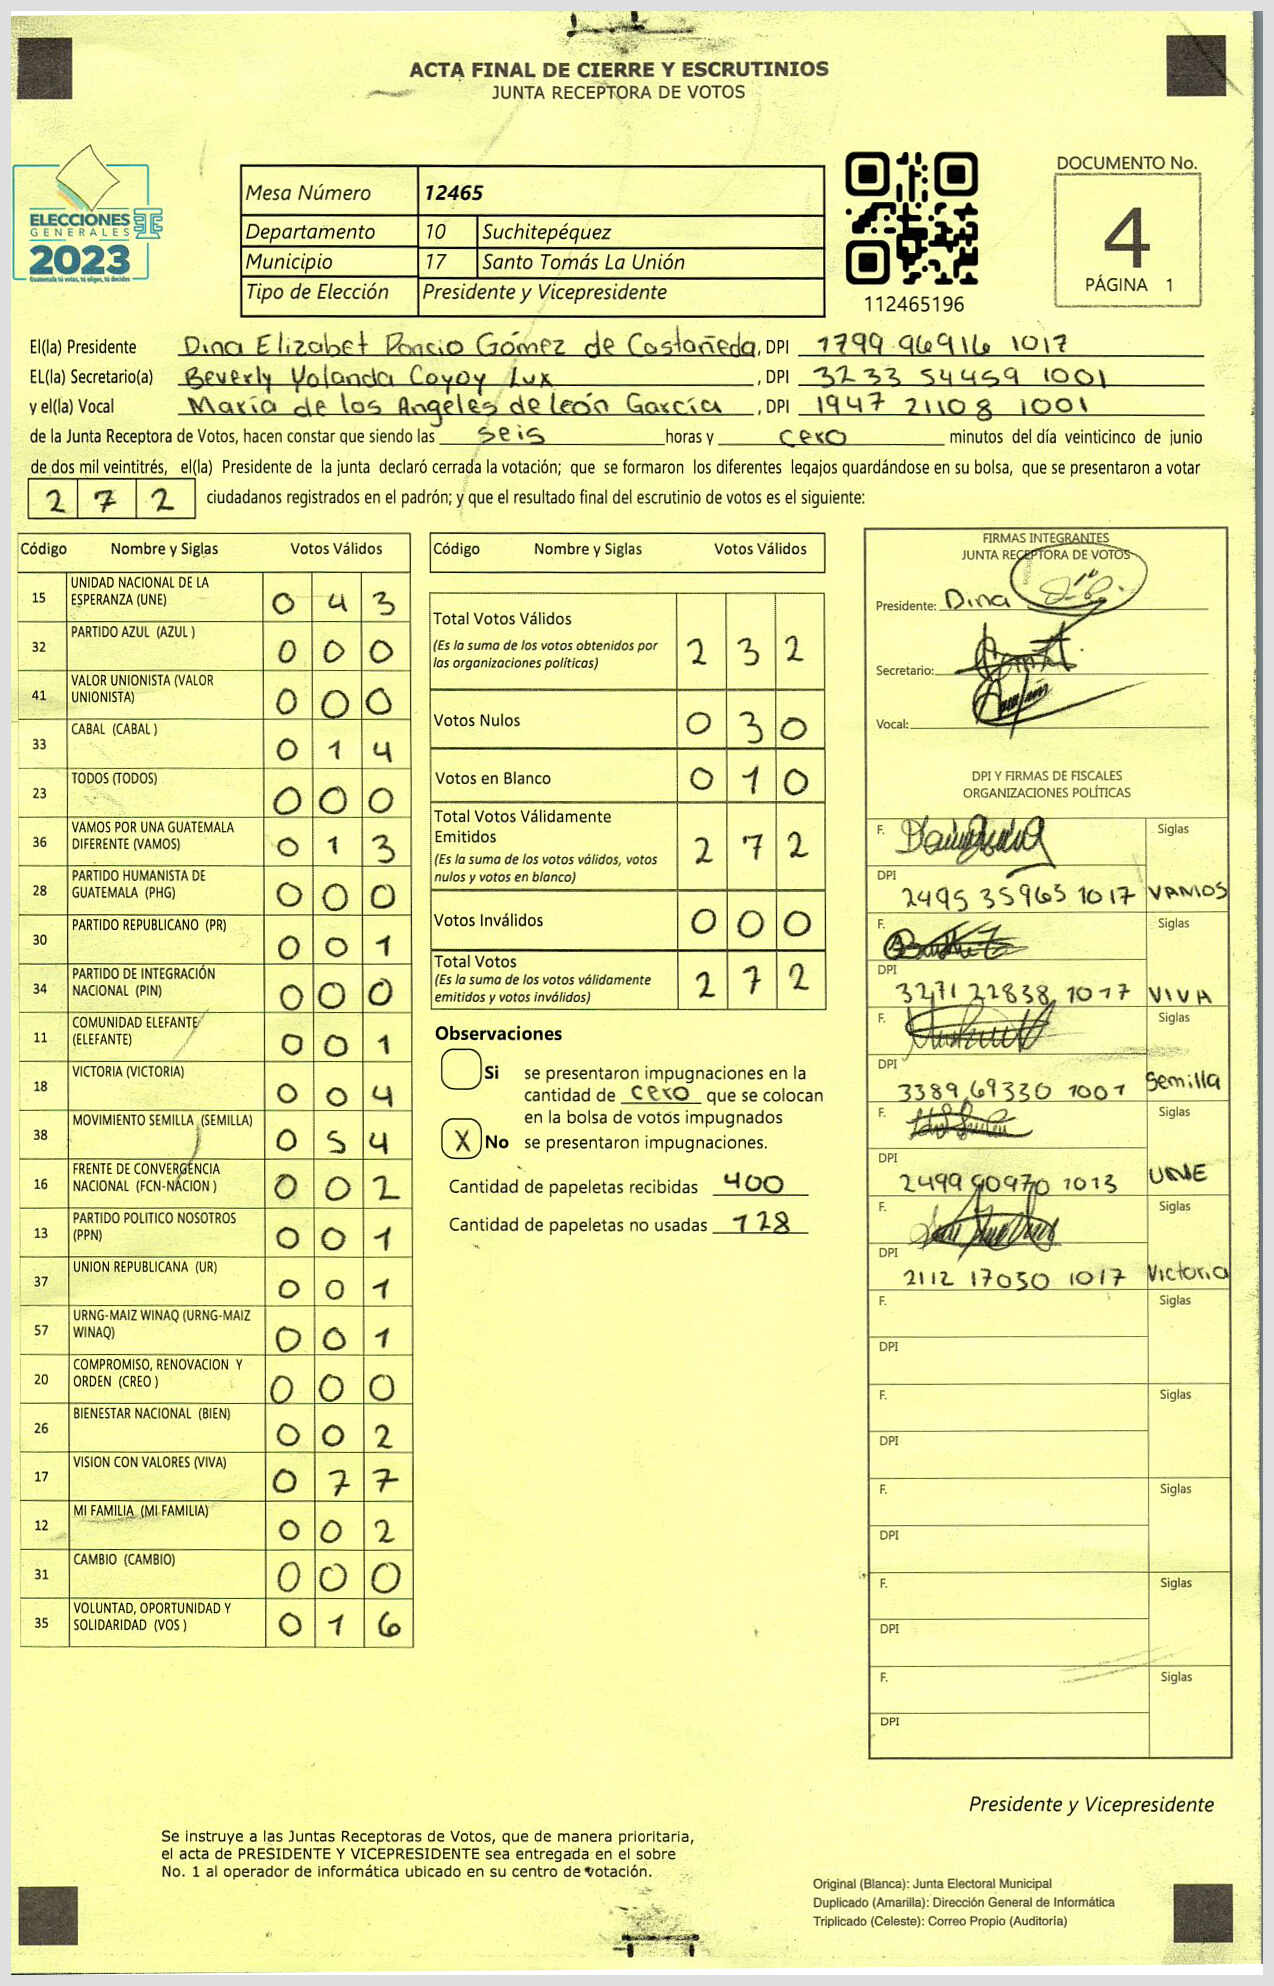 ACTA FINAL DE CIERRE Y ESCRUTINIOS
JUNTA RECEPTORA DE VOTOS
ELECCIONES
GENERALES
2023
Guatemala tú votas, tú eliges, tú decides
Mesa Número 12465
Departamento 10 Suchitepéquez
Municipio 17 Santo Tomás La Unión
Tipo de Elección Presidente y Vicepresidente
112465196
DOCUMENTO No.
4
PÁGINA 1
El(la) Presidente Dina Elizabet Poncio Gómez de Castañeda, DPI 1799 96916 1017
EL(la) Secretario(a) Beverly Yolanda Coyoy Lux, DPI 3233 54459 1001
y el(la) Vocal María de los Angeles de León García, DPI 1947 21108 1001
de la Junta Receptora de Votos, hacen constar que siendo las seis horas y cero minutos del día veinticinco de junio
de dos mil veintitrés, el(la) Presidente de la junta declaró cerrada la votación; que se formaron los diferentes legajos quardándose en su bolsa, que se presentaron a votar
272 ciudadanos registrados en el padrón; y que el resultado final del escrutinio de votos es el siguiente:
Código Nombre y Siglas Votos Válidos
15 UNIDAD NACIONAL DE LA ESPERANZA (UNE) 043
32 PARTIDO AZUL (AZUL ) 000
41 VALOR UNIONISTA (VALOR UNIONISTA) 000
33 CABAL (CABAL ) 014
23 TODOS (TODOS) 000
36 VAMOS POR UNA GUATEMALA DIFERENTE (VAMOS) 013
28 PARTIDO HUMANISTA DE GUATEMALA (PHG) 000
30 PARTIDO REPUBLICANO (PR) 001
34 PARTIDO DE INTEGRACIÓN NACIONAL (PIN) 000
11 COMUNIDAD ELEFANTE (ELEFANTE) 001
18 VICTORIA (VICTORIA) 004
38 MOVIMIENTO SEMILLA (SEMILLA) 054
16 FRENTE DE CONVERGENCIA NACIONAL (FCN-NACION ) 002
13 PARTIDO POLITICO NOSOTROS (PPN) 001
37 UNION REPUBLICANA (UR) 001
57 URNG-MAIZ WINAQ (URNG-MAIZ WINAQ) 001
20 COMPROMISO, RENOVACION Y ORDEN (CREO ) 000
26 BIENESTAR NACIONAL (BIEN) 002
17 VISION CON VALORES (VIVA) 077
12 MI FAMILIA (MI FAMILIA) 002
31 CAMBIO (CAMBIO) 000
35 VOLUNTAD, OPORTUNIDAD Y SOLIDARIDAD (VOS ) 016
Código Nombre y Siglas Votos Válidos
Total Votos Válidos 232
(Es la suma de los votos obtenidos por
las organizaciones políticas)
Votos Nulos 030
Votos en Blanco 010
Total Votos Válidamente
Emitidos 272
(Es la suma de los votos válidos, votos
nulos y votos en blanco)
Votos Inválidos 000
Total Votos 272
(Es la suma de los votos válidamente
emitidos y votos inválidos)
Observaciones
Si se presentaron impugnaciones en la
cantidad de cero que se colocan
en la bolsa de votos impugnados
X No se presentaron impugnaciones.
Cantidad de papeletas recibidas 400
Cantidad de papeletas no usadas 128
FIRMAS INTEGRANTES
JUNTA RECEPTORA DE VOTOS
Presidente: Dina
Secretario:
Vocal:
DPI Y FIRMAS DE FISCALES
ORGANIZACIONES POLÍTICAS
F. Siglas
DPI 2495 35965 1017 VAMOS
F. Siglas
DPI 3271 22838 1017 VIVA
F. Siglas
DPI 3389 69330 1001 Semilla
F. Siglas
DPI 2499 90970 1013 UNE
F. Siglas
DPI 2112 17050 1017 Victoria
F. Siglas
DPI
F. Siglas
DPI
F. Siglas
DPI
F. Siglas
DPI
F. Siglas
DPI
Presidente y Vicepresidente
Se instruye a las Juntas Receptoras de Votos, que de manera prioritaria,
el acta de PRESIDENTE Y VICEPRESIDENTE sea entregada en el sobre
No. 1 al operador de informática ubicado en su centro de votación.
Original (Blanca): Junta Electoral Municipal
Duplicado (Amarilla): Dirección General de Informática
Triplicado (Celeste): Correo Propio (Auditoría)